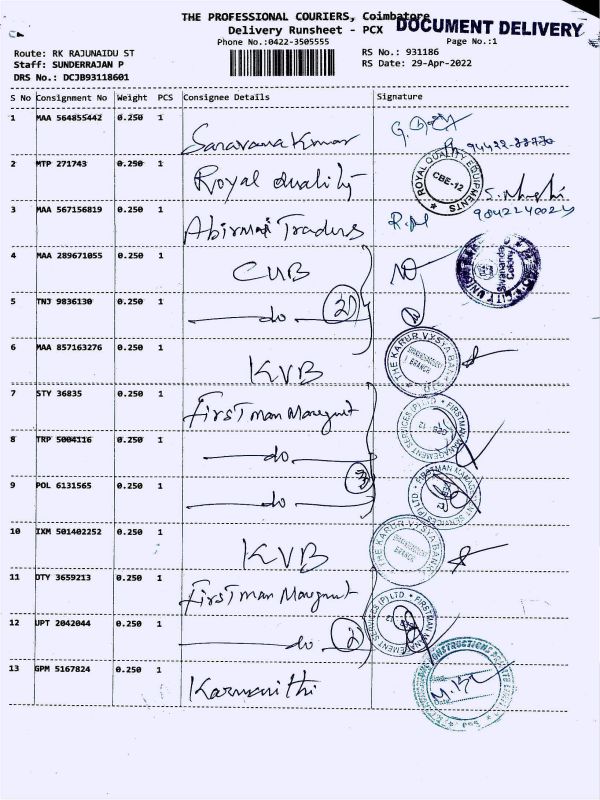 THE PROFESSIONAL COURIERS, Coimbatore
DOCUMENT DELIVERY
Delivery Runsheet - PCX
Phone No.:0422-3505555
Page No.:1
Route: RK RAJUNAIDU ST
RS No.: 931186
Staff: SUNDERRAJAN P
RS Date: 29-Apr-2022
DRS No.: DCJB93118601
S No Consignment No Weight PCS Consignee Details Signature
1 MAA 564855442 0.250 1 Saravana Kumar
2 MTP 271743 0.250 1 Royal Quality
ROYAL QUALITY EQUIPMENTS
CBE-12
3 MAA 567156819 0.250 1 Abirami Traders
4 MAA 289671055 0.250 1 CUB
CITY UNION BANK
Sivananda
Colony
5 TNJ 9836130 0.250 1 do 2
6 MAA 857163276 0.250 1 KVB
THE KARUR VYSYA BANK
BRANCH
7 STY 36835 0.250 1 First man Managmet
FIRSTMAN MANAGEMENT SERVICES (P) LTD
CBE - 12
8 TRP 5004116 0.250 1 do
9 POL 6131565 0.250 1 do 3
FIRSTMAN MANAGEMENT SERVICES (P) LTD
10 IXM 501402252 0.250 1 KVB
THE KARUR VYSYA BANK
BRANCH
11 OTY 3659213 0.250 1 First man Managmet
FIRSTMAN MANAGEMENT SERVICES (P) LTD
12 UPT 2042044 0.250 1 do 2
13 GPM 5167824 0.250 1 Karunanithi